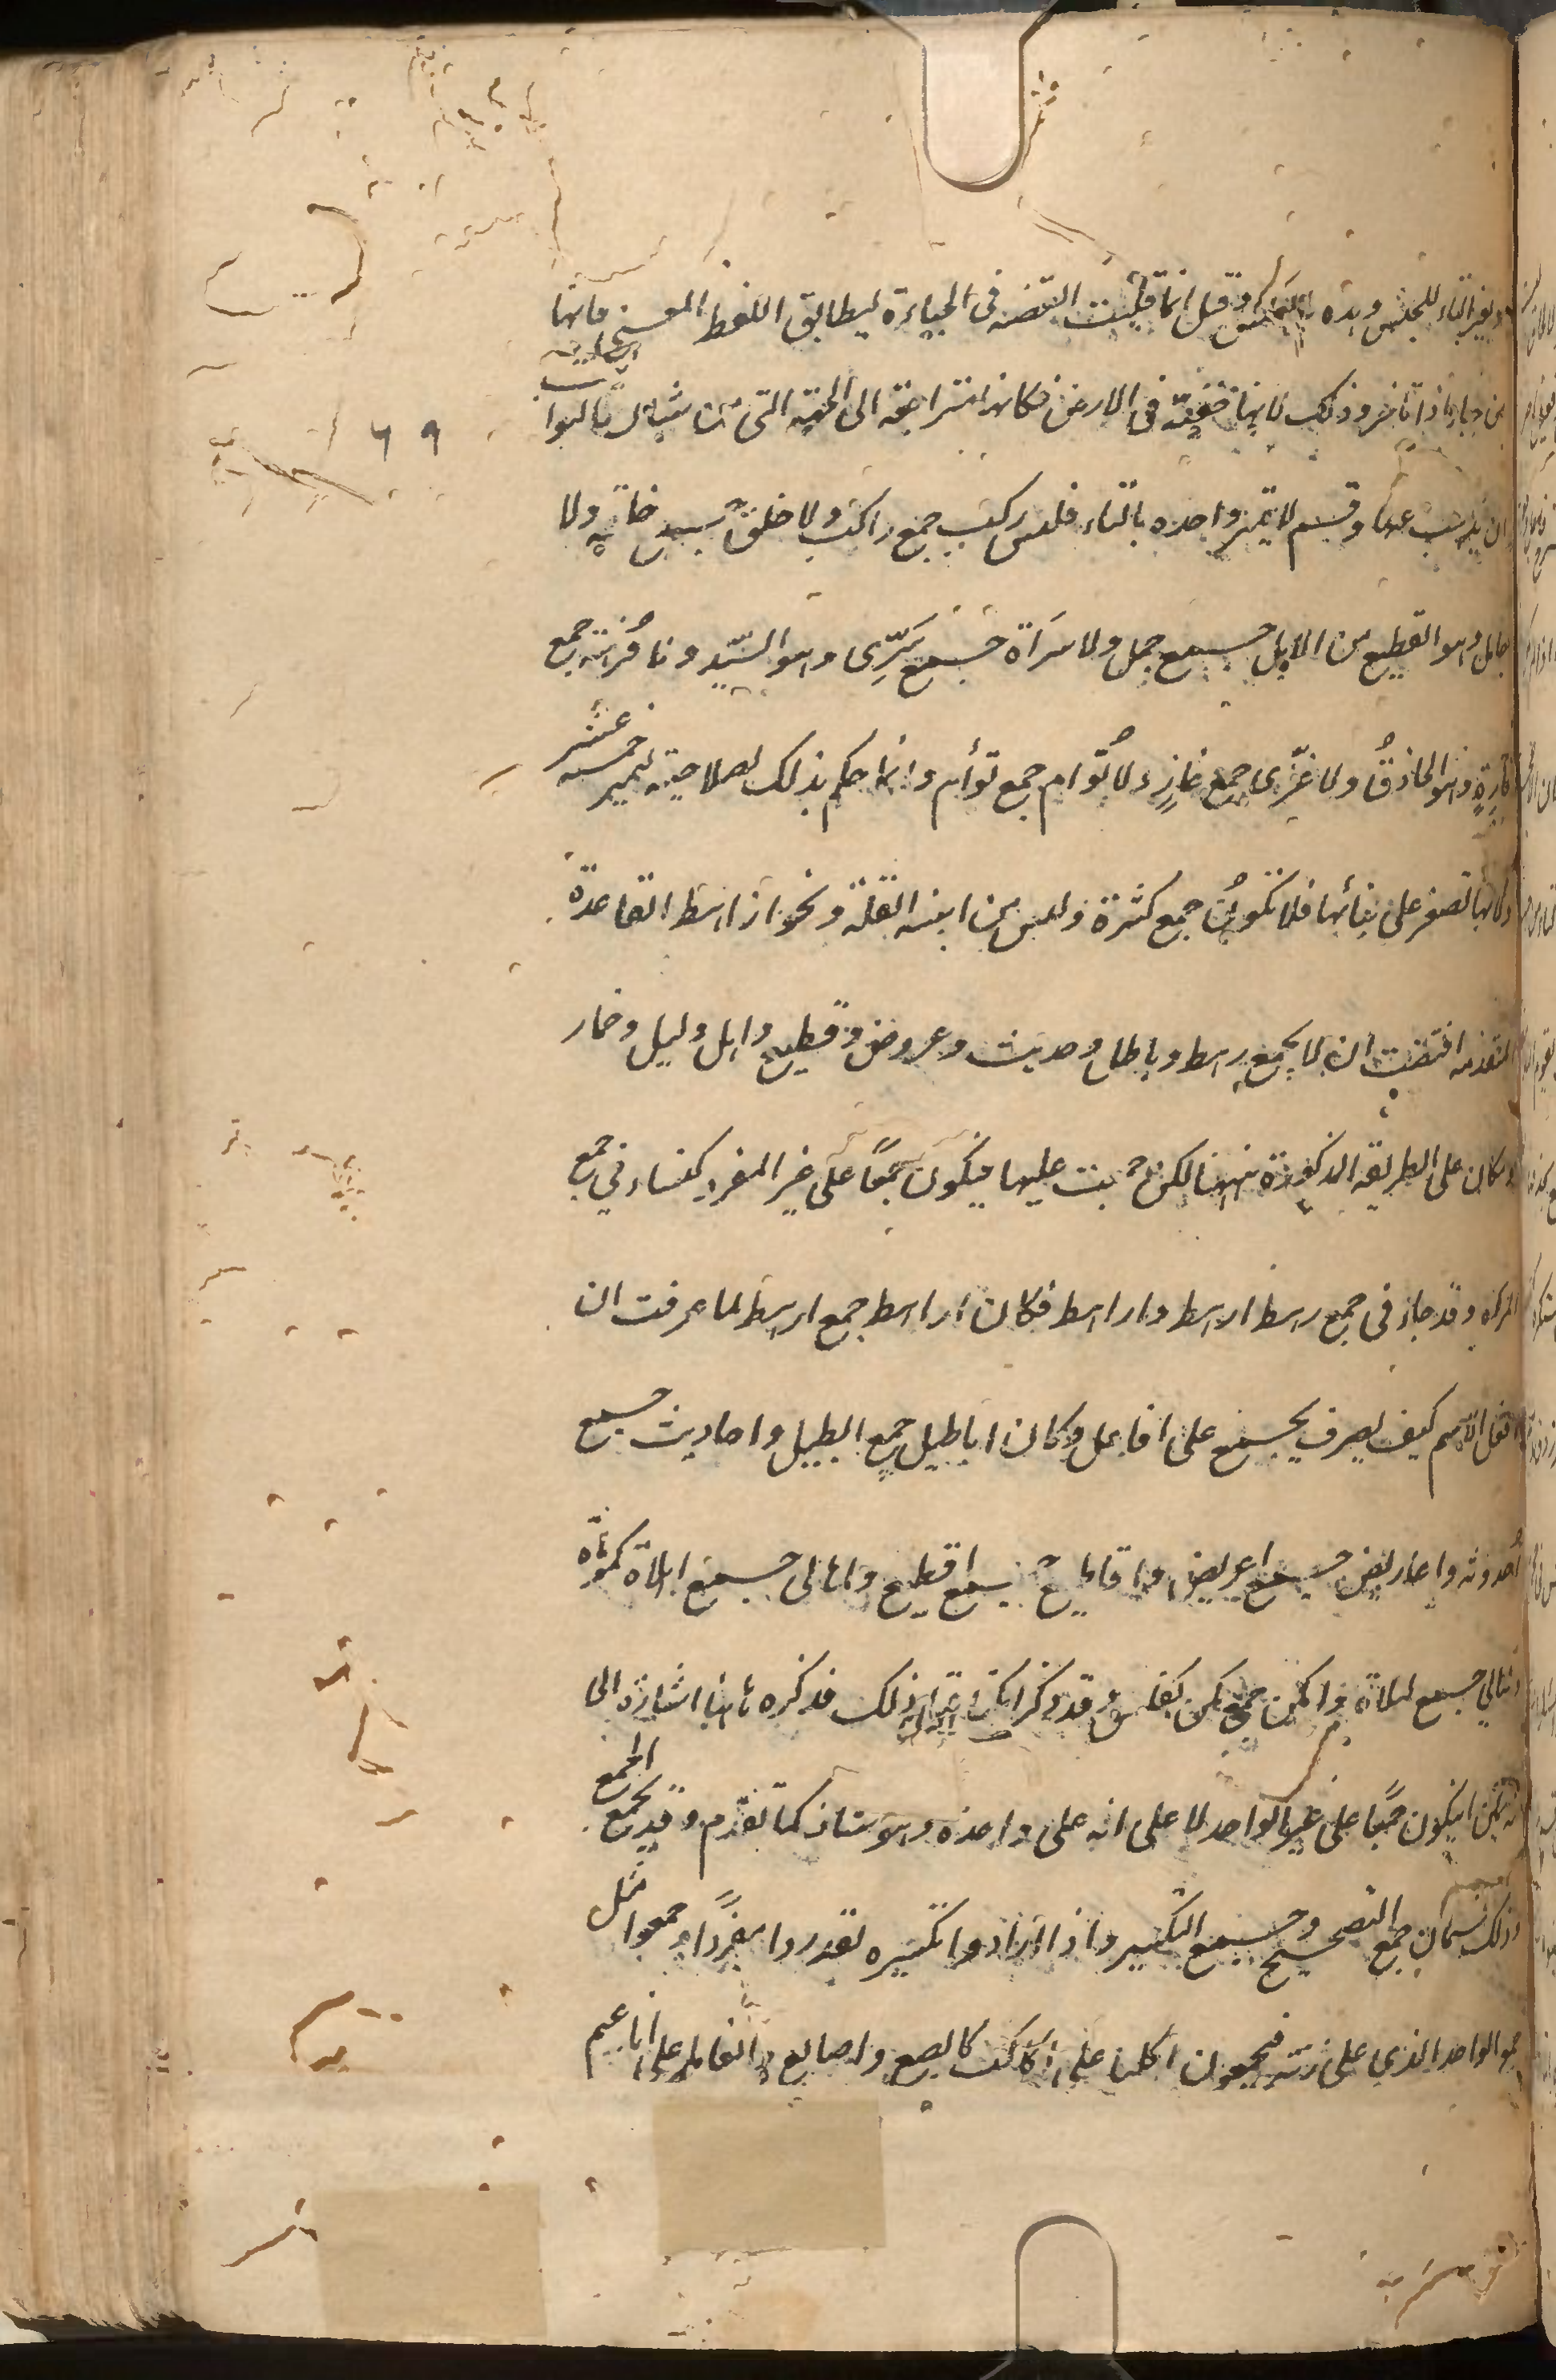 وبغير التاء للجنس وهذه بالعكس وقيل انما قلبت القضية في الجباءة ليطابق اللفظ المعنى فانها
من جبا اذا تأخر وذلك لانها خفية في الارض فكانها متراجعة الى الجهة التي من شأن طالبها
ان يذهب عنها وقسم لا يتميز واحده بالتاء فليس ركب جمع راكب ولا حلق جمع حلقة ولا
جامل وهو القطيع من الابل جمع جمل ولا سَراة جمع سَرِّى وهو السيد ولا فُرهة جمع
فارِهٍ وهو الحاذقُ ولا غزى جمع غازٍ ولا تُوام جمع توأم وانما حكم بذلك لصلاحية تمييز خمسة عشر
وكانها تصغر على بنائها فلا تكون جمع كثرة وليس من ابنية القلة ونحو اراهط القاعدة
المتقدمة اقتضت ان لا يجمع رهط وباطل وحديث وعروض وقطيع واهل وليل وحمار
ومكان على الطريقة المذكورة ههنا لكن جمعت عليها فيكون جمعًا على غير المفرد كنساء في جمع
المراة وقد جاء في جمع رهط ارهط واراهط فكان اراهط جمع ارهط لما عرفت ان
افعل الاسم كيف تصرف يجمع على افاعل وكان اباطيل جمع ابطيل واحاديث جمع
أحدوثة واعاريض جمع اعريض واقاطيع جمع اقطيع واهالى جمع اهلاة كموماة
وليالي جمع ليلاة وامكن جمع مكن كفلس وقد ذكر امكن قبل ذلك فذكره ثانيا اشارة الى
انه يمكن ان يكون جمعًا على غير الواحد لا على انه على واحده وهو شاذ كما تقدم وقد يجمع الجمع
وذلك قسمان جمع التصحيح وجمع التكسير واذا ارادوا تكسيره قدروا مفردًا وجمعوا مثل
جمع الواحد الذي على زنته فيجمعون اكلب على اكالب كاصبع واصابع وانعام على اناعيم